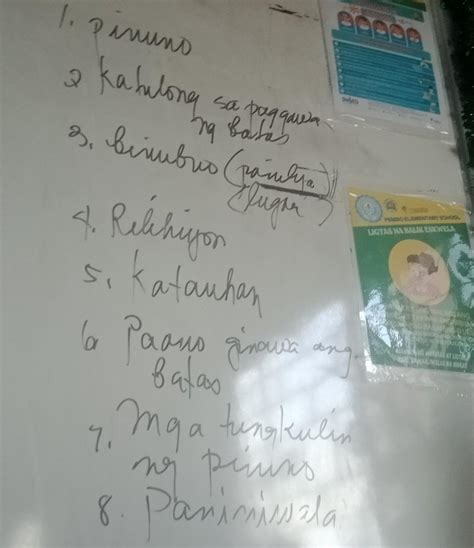 1. pinuno
2 Katulong sa paggawa
ng batas
3. binubuo (pamilya)
(lugar)
4. Relihiyon
5. Katauhan
6 Paano ginawa ang
batas
7. Mga tungkulin
ng pinuno
8. Paniniwala
PEMBO ELEMENTARY SCHOOL
LIGTAS NA BALIK ESKWELA